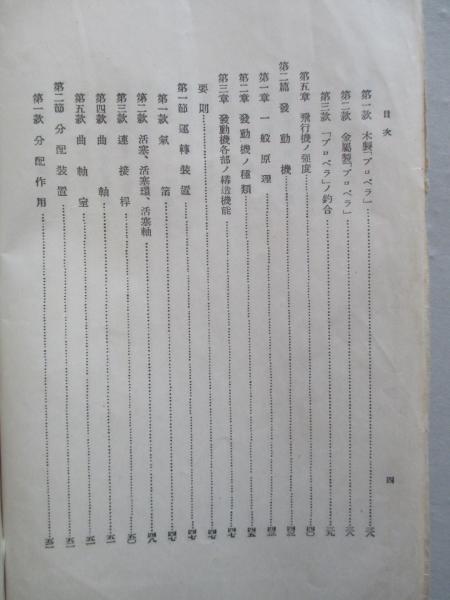 目次
四
第一款 木製「プロペラ」……三八
第二款 金屬製「プロペラ」……三八
第三款 「プロペラ」ノ釣合……三九
第五章 飛行機ノ强度……四〇
第二篇 發動機……四三
第一章 一般原理……四三
第二章 發動機ノ種類……四五
第三章 發動機各部ノ構造機能……四七
要則……四七
第一節 運轉裝置……四七
第一款 氣筩……四七
第二款 活塞、活塞環、活塞軸……四八
第三款 連接桿……五〇
第四款 曲軸……五一
第五款 曲軸室……五一
第二節 分配裝置……五二
第一款 分配作用……五二